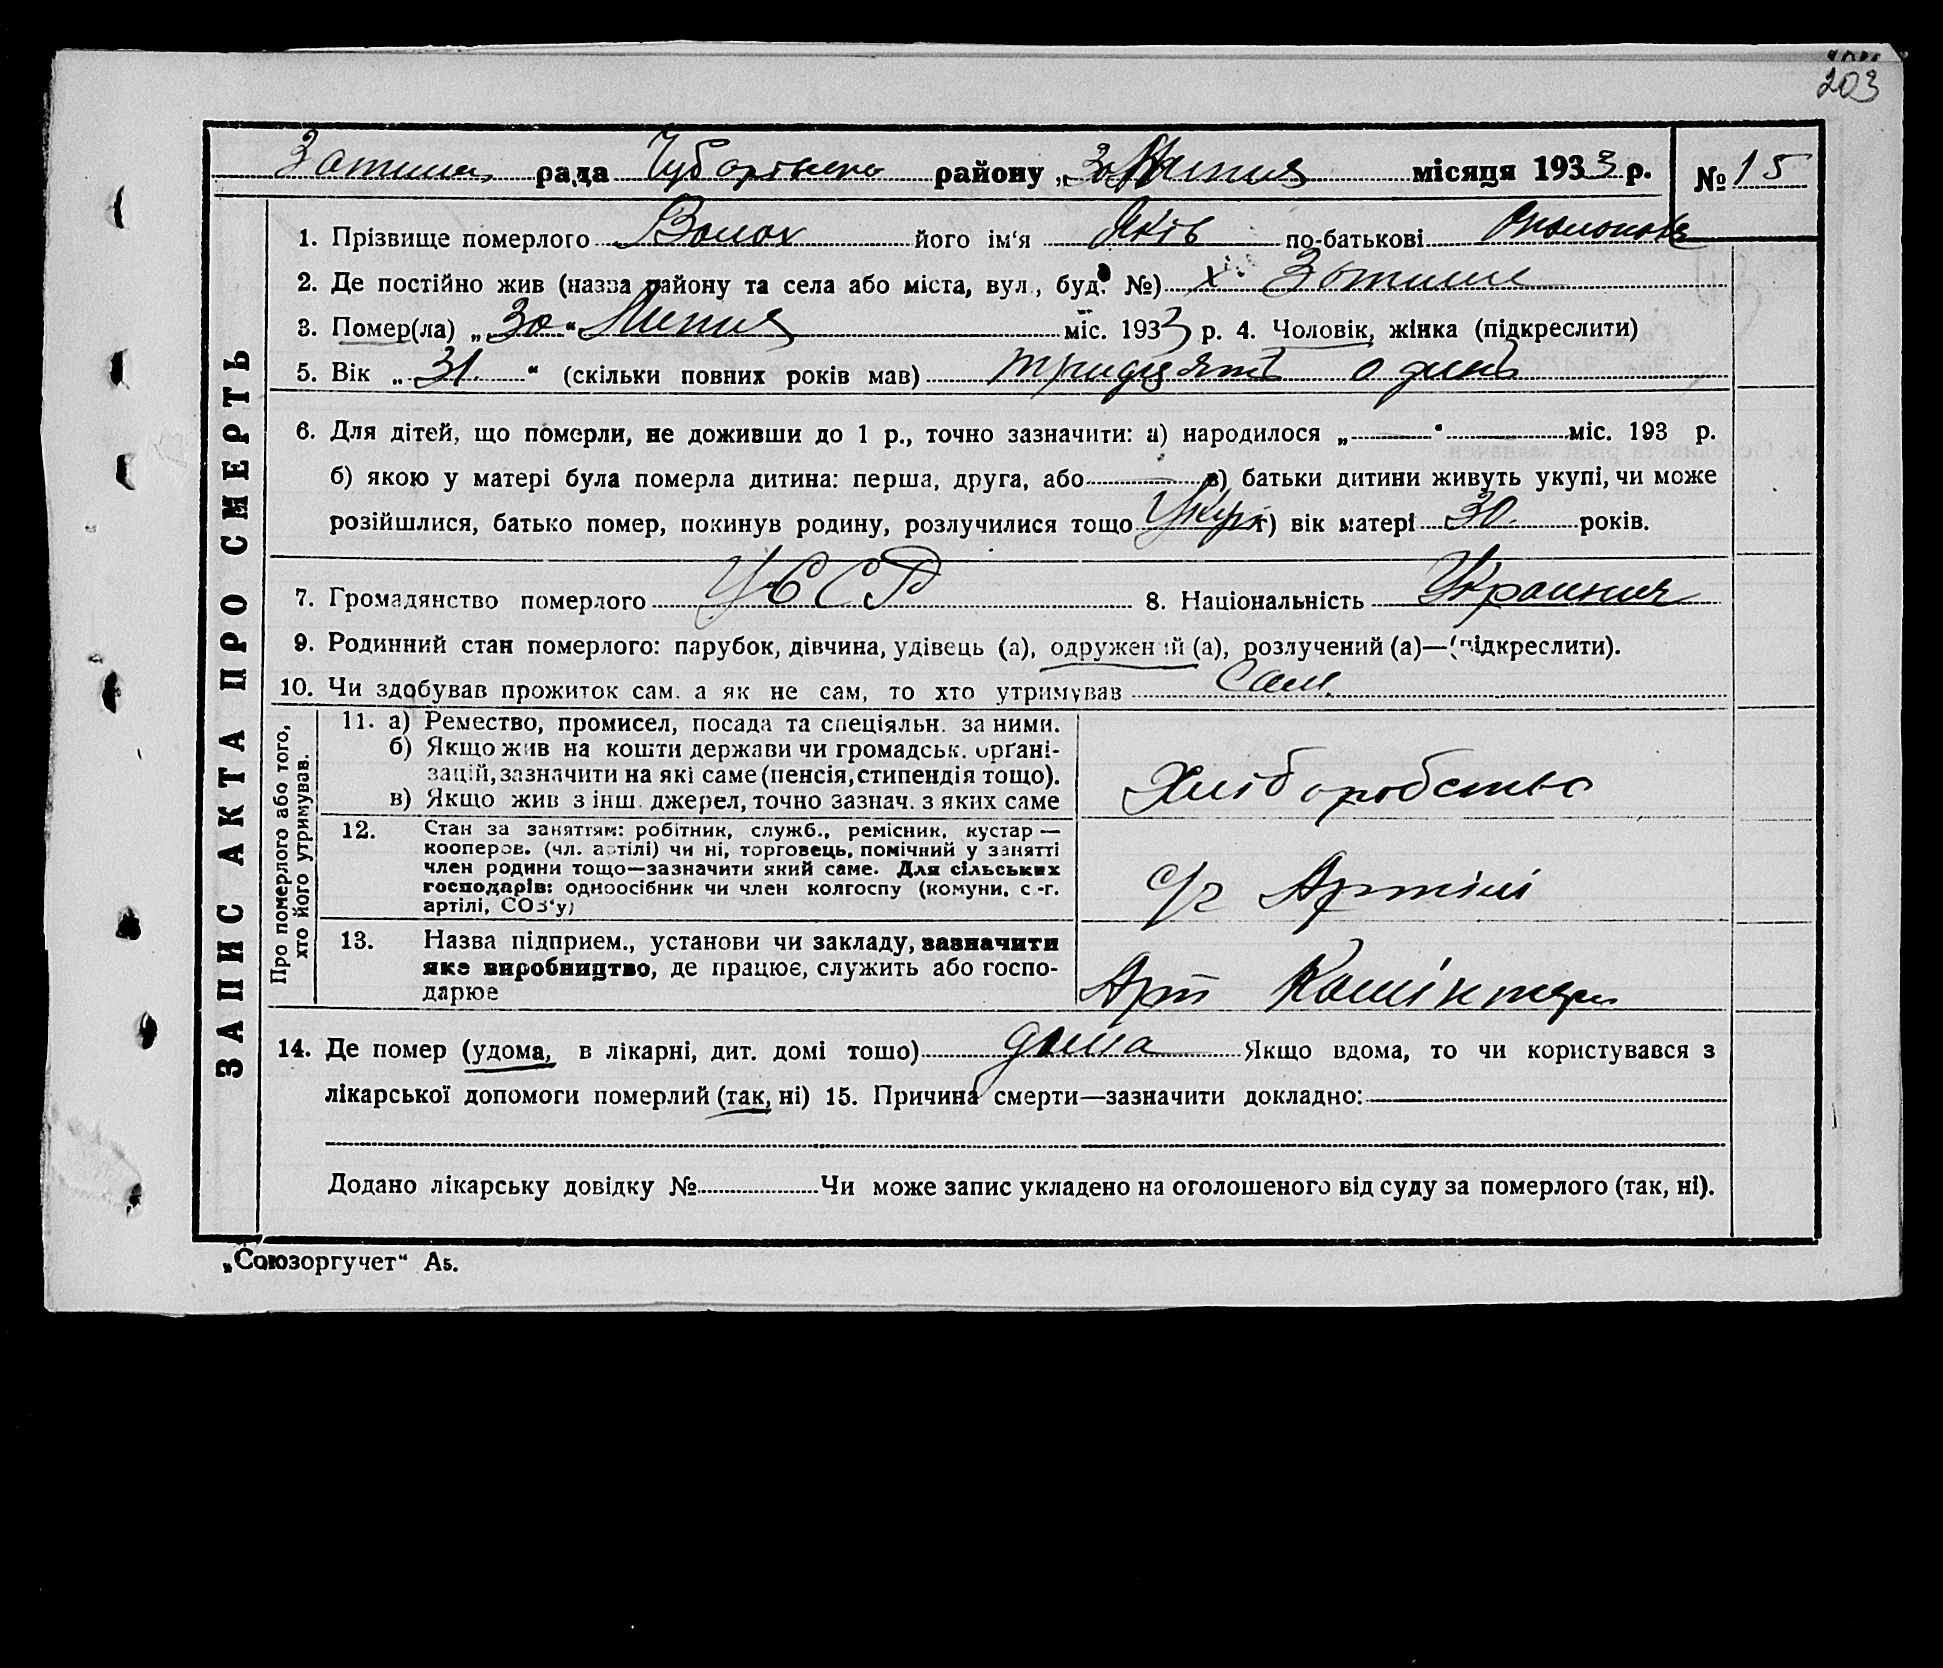 203
Затиш. рада Чубарівського району „30“ Липня місяця 1933 р. № 15
ЗАПИС АКТА ПРО СМЕРТЬ
1. Прізвище померлого Волох його ім‘я Яків по-батькові
2. Де постійно жив (назва району та села або міста, вул., буд. №) х. Затише
3. Помер(ла) „30“ Липня міс. 1933 р. 4. Чоловік, жінка (підкреслити)
5. Вік „31“ (скільки повних років мав) тридцять один
6. Для дітей, що померли, не доживши до 1 р., точно зазначити: а) народилося „ “ міс. 193 р.
б) якою у матері була померла дитина: перша, друга, або в) батьки дитини живуть укупі, чи може
розійшлися, батько помер, покинув родину, розлучилися тощо Укупі г) вік матері 30 років.
7. Громадянство померлого УССР 8. Національність
9. Родинний стан померлого: парубок, дівчина, удівець (а), одружений (а), розлучений (а)—(підкреслити).
10. Чи здобував прожиток сам. а як не сам, то хто утримував Сам.
Про померлого або того, хто його утримував.
11. а) Ремество, промисел, посада та спеціяльн. за ними.
б) Якщо жив на кошти держави чи громадськ. орґані-
зацій, зазначити на які саме (пенсія, стипендія тощо).
в) Якщо жив з інш. джерел, точно зазнач. з яких саме
Хліборобство
12. Стан за заняттям: робітник, служб., ремісник, кустар —
кооперов. (чл. артілі) чи ні, торговець, помічний у занятті
член родини тощо—зазначити який саме. Для сільських
господарів: одноосібник чи член колгоспу (комуни, с.-г.
артілі, СОЗ‘у)
с/г Артілі
13. Назва підприєм., установи чи закладу, зазначити
яке виробництво, де працює, служить або госпо-
дарює
Арт Комінтерн
14. Де помер (удома, в лікарні, дит. домі тошо) дома Якщо вдома, то чи користувався з
лікарської допомоги померлий (так, ні) 15. Причина смерти—зазначити докладно:
Додано лікарську довідку № Чи може запис укладено на оголошеного від суду за померлого (так, ні).
„Союзоргучет“ А5.